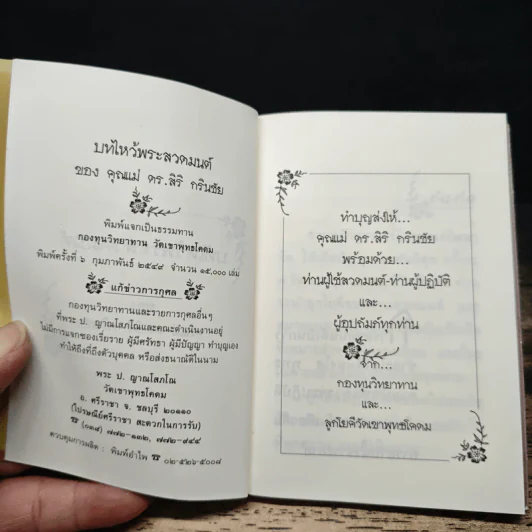 บทไหว้พระสวดมนต์
ของ คุณแม่ ดร.สิริ กรินชัย
พิมพ์แจกเป็นธรรมทาน
กองทุนวิทยาทาน วัดเขาพุทธโคดม
พิมพ์ครั้งที่ ๖ กุมภาพันธ์ ๒๕๔๙ จำนวน ๑๕,๐๐๐ เล่ม
แก้ข่าวการกุศล
กองทุนวิทยาทานและรายการกุศลอื่นๆ
ที่พระ ป. ญาณโสภโณและคณะดำเนินงานอยู่
ไม่มีการแจกซองเรี่ยราย ผู้มีศรัทธา ผู้มีปัญญา ทำบุญเอง
ทำให้ถึงที่ถึงตัวบุคคล หรือส่งธนาณัติในนาม
พระ ป. ญาณโสภโณ
วัดเขาพุทธโคดม
อ. ศรีราชา จ. ชลบุรี ๒๐๑๑๐
(ไปรษณีย์ศรีราชา สะดวกในการรับ)
☎ (๐๓๘) ๗๗๒-๑๓๒, ๗๗๒-๔๔๔
ควบคุมการผลิต : พิมพ์อำไพ ☎ ๐๒-๕๒๖-๕๐๐๘
ทำบุญส่งให้...
คุณแม่ ดร.สิริ กรินชัย
พร้อมด้วย...
ท่านผู้ใช้สวดมนต์-ท่านผู้ปฏิบัติ
และ...
ผู้อุปถัมภ์ทุกท่าน
จาก...
กองทุนวิทยาทาน
และ...
ลูกโยคีวัดเขาพุทธโคดม